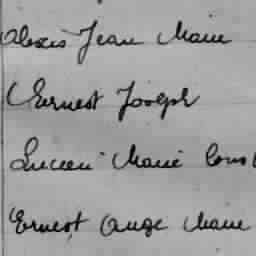 Alexis Jean Marie
Ernest Joseph
Lucien Marie Cons
Ernest Ange Marie